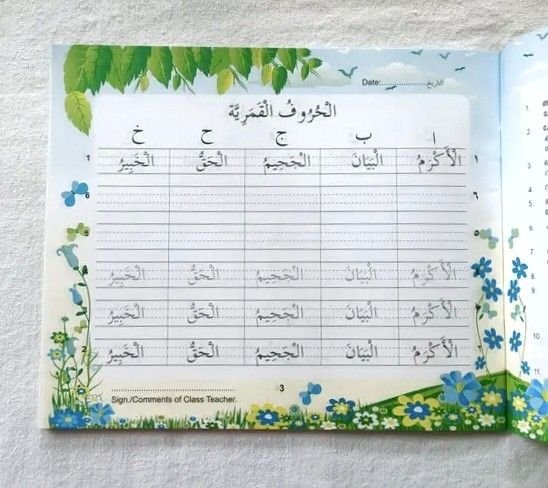 Date:........................التاريخ
الْحُرُوفُ الْقَمَرِيَّة
ا ب ج ح خ
الْأَكْرَمُ الْبَيَانَ الْجَحِيمُ الْحَقُّ الْخَبِيرُ
الْأَكْرَمُ الْبَيَانَ الْجَحِيمُ الْحَقُّ الْخَبِيرُ
الْأَكْرَمُ الْبَيَانَ الْجَحِيمُ الْحَقُّ الْخَبِيرُ
الْأَكْرَمُ الْبَيَانَ الْجَحِيمُ الْحَقُّ الْخَبِيرُ
3
Sign./Comments of Class Teacher.